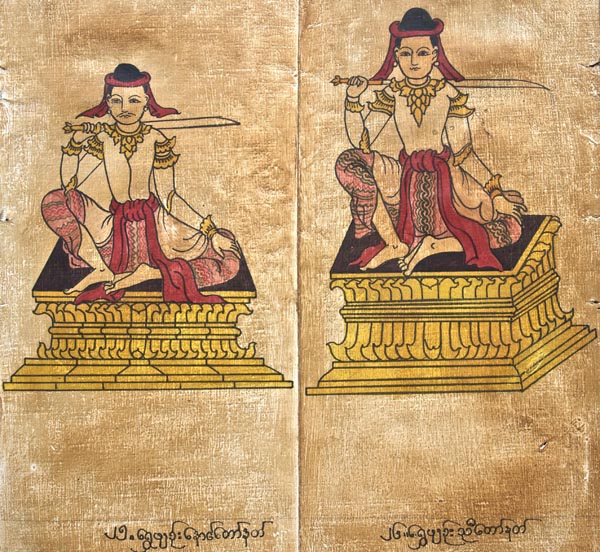 ၂၅။ ရွှေဖျဉ်းနောင်တော်နတ်
၂၆။ ရွှေဖျဉ်းညီတော်နတ်